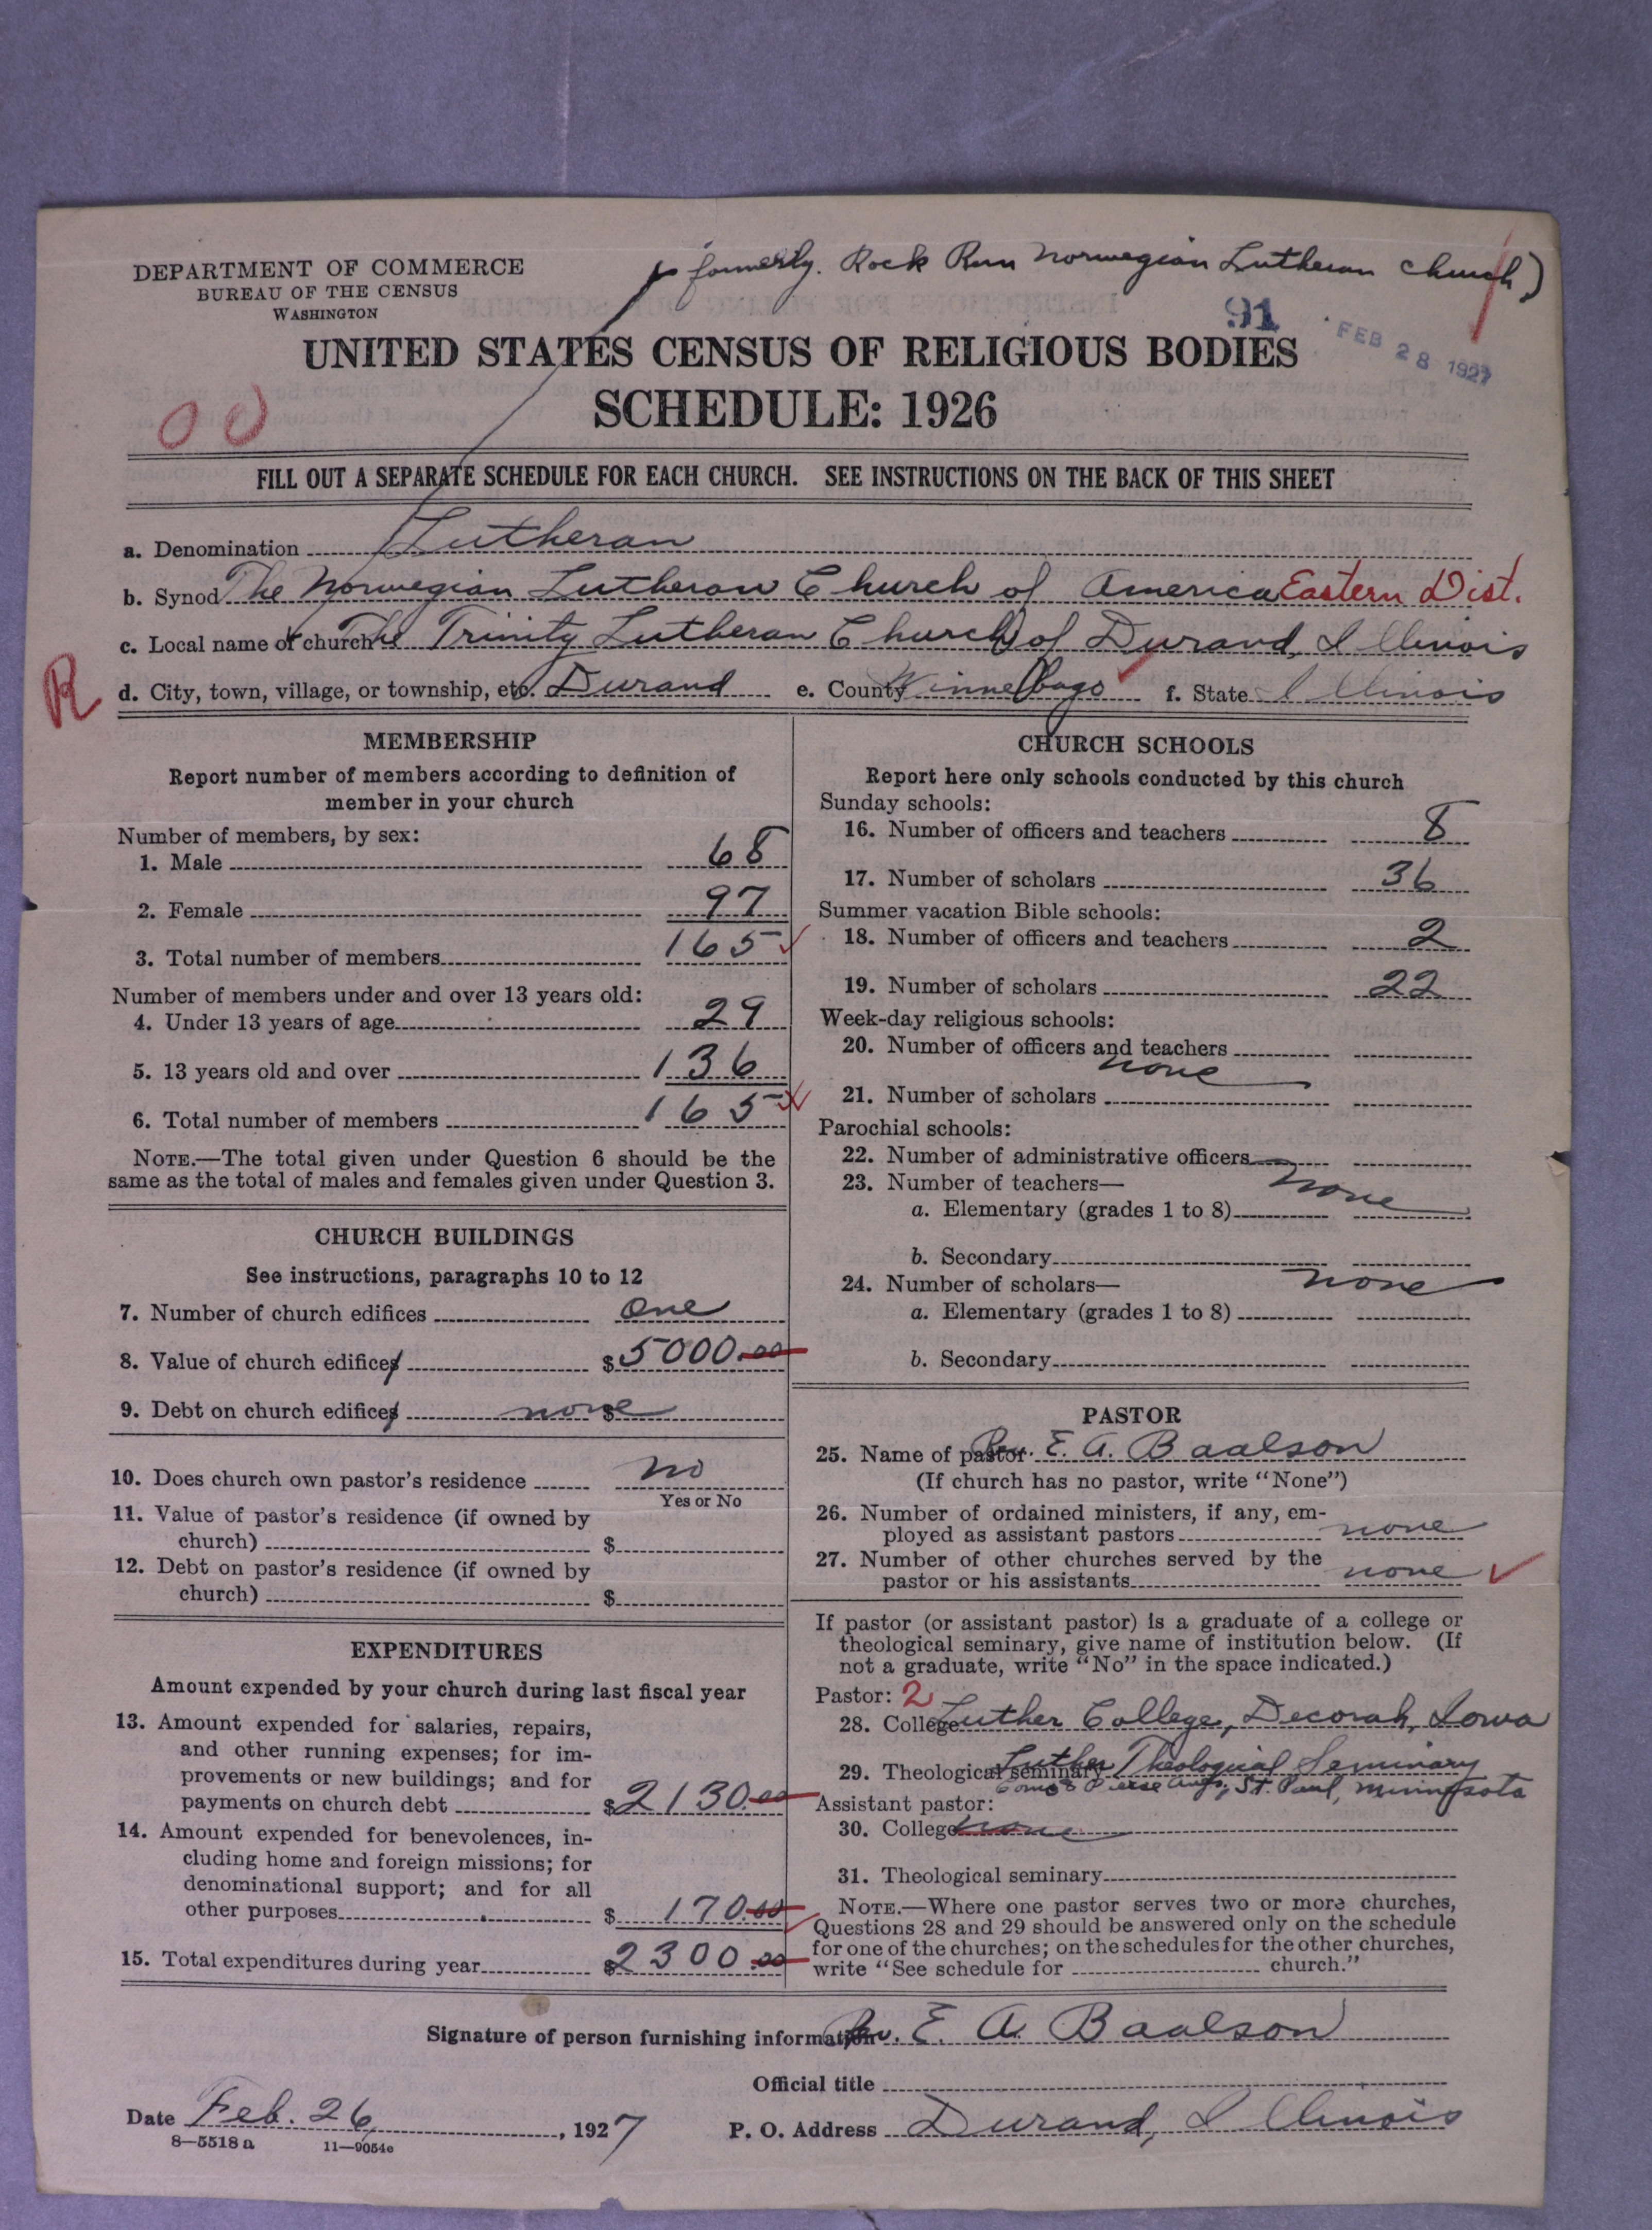 DEPARTMENT OF COMMERCE
BUREAU OF THE CENSUS
WASHINGTON
(formerly. Rock Run Norwegian Lutheran Church)
91
FEB 28 1927
UNITED STATES CENSUS OF RELIGIOUS BODIES
SCHEDULE: 1926
00
FILL OUT A SEPARATE SCHEDULE FOR EACH CHURCH. SEE INSTRUCTIONS ON THE BACK OF THIS SHEET
a. Denomination Lutheran
b. Synod The Norwegian Lutheran Church of America Eastern Dist.
c. Local name of church The Trinity Lutheran Church of Durand, Illinois
R
d. City, town, village, or township, etc. Durand e. County Winnebago f. State Illinois
MEMBERSHIP
Report number of members according to definition of
member in your church
Number of members, by sex:
1. Male 68
2. Female 97
3. Total number of members 165
Number of members under and over 13 years old:
4. Under 13 years of age 29
5. 13 years old and over 136
6. Total number of members 165
NOTE.—The total given under Question 6 should be the
same as the total of males and females given under Question 3.
CHURCH BUILDINGS
See instructions, paragraphs 10 to 12
7. Number of church edifices one
8. Value of church edifices $5000.00
9. Debt on church edifices none $
10. Does church own pastor's residence no
Yes or No
11. Value of pastor's residence (if owned by
church) $
12. Debt on pastor's residence (if owned by
church) $
EXPENDITURES
Amount expended by your church during last fiscal year
13. Amount expended for salaries, repairs,
and other running expenses; for im-
provements or new buildings; and for
payments on church debt $2130.00
14. Amount expended for benevolences, in-
cluding home and foreign missions; for
denominational support; and for all
other purposes $ 170.00
15. Total expenditures during year $2300.00
CHURCH SCHOOLS
Report here only schools conducted by this church
Sunday schools:
16. Number of officers and teachers 8
17. Number of scholars 36
Summer vacation Bible schools:
18. Number of officers and teachers 2
19. Number of scholars 22
Week-day religious schools:
20. Number of officers and teachers
none
21. Number of scholars
Parochial schools:
22. Number of administrative officers
23. Number of teachers— none
a. Elementary (grades 1 to 8)
b. Secondary
24. Number of scholars— none
a. Elementary (grades 1 to 8)
b. Secondary
PASTOR
25. Name of pastor Rev. E. A. Baalson
(If church has no pastor, write "None")
26. Number of ordained ministers, if any, em-
ployed as assistant pastors none
27. Number of other churches served by the
pastor or his assistants none
If pastor (or assistant pastor) is a graduate of a college or
theological seminary, give name of institution below. (If
not a graduate, write "No" in the space indicated.)
Pastor: 2
28. College Luther College, Decorah, Iowa
29. Theological seminary Luther Theological Seminary
Como & Pierce Aves, St. Paul, Minnesota
Assistant pastor:
30. College none
31. Theological seminary
NOTE.—Where one pastor serves two or more churches,
Questions 28 and 29 should be answered only on the schedule
for one of the churches; on the schedules for the other churches,
write "See schedule for church."
Signature of person furnishing information Rev. E. A. Baalson
Official title
Date Feb. 26, 1927 P. O. Address Durand, Illinois
8—5518 a 11—9054c